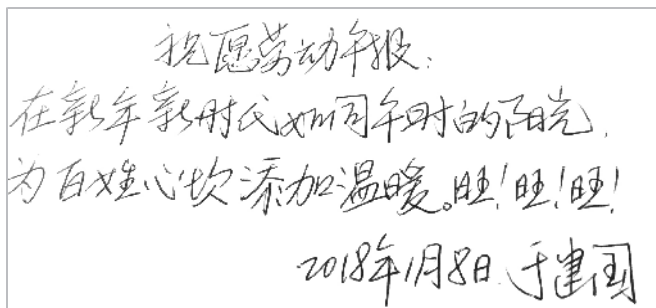 祝愿劳动午报：
在新年新时代如同午时的阳光，
为百姓心坎添加温暖。旺！旺！旺！
2018年1月8日 于建国